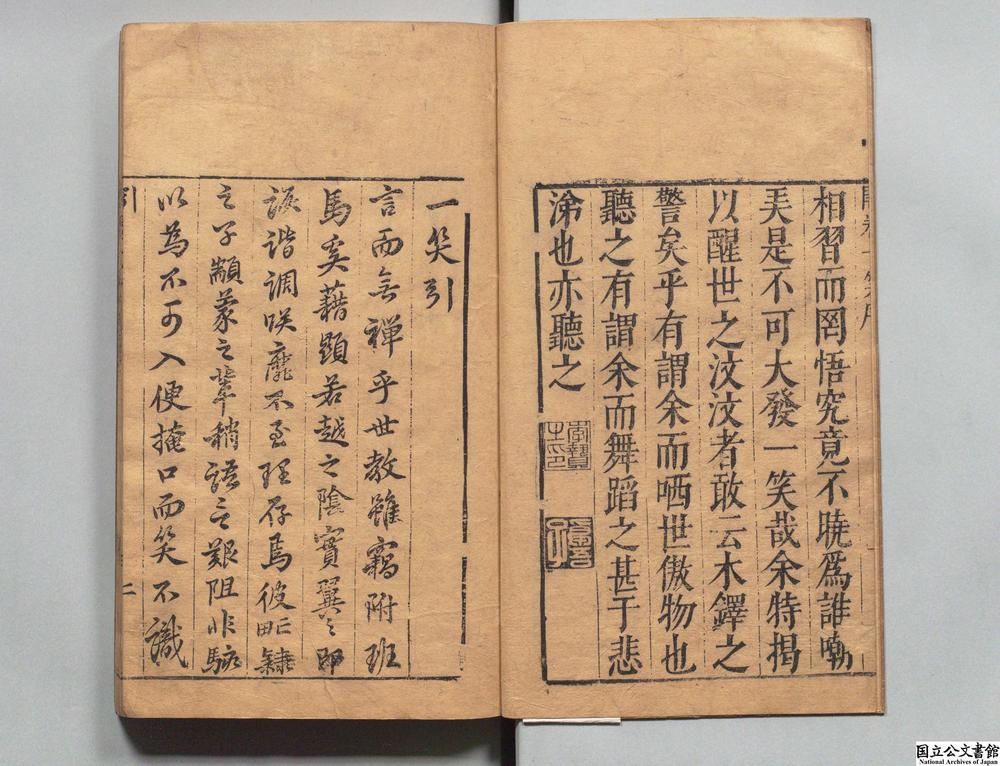 相習而罔悟究竟不曉爲誰嘲
美是不可大發一笑哉余特揭
以醒世之汶汶者敢云木鐸之
警矣乎有謂余而哂世傲物也
聽之有謂余而舞蹈之甚于悲
涕也亦聽之
一笑引
言而無禪乎世教雖竊附班
馬奚藉顯若越之陰實翼之即
詼諧調咲靡不至理存焉彼
之子顓蒙之輩稍語之艱阻非駭
以為不可入便掩口而笑不識
引
二
国立公文書館
National Archives of Japan